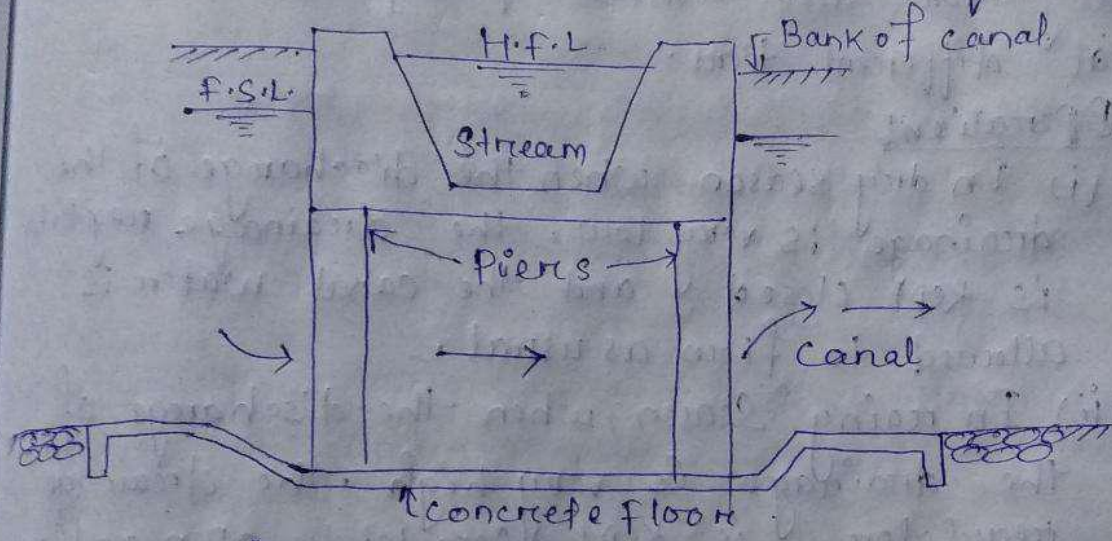 H.F.L
Bank of canal.
F.S.L.
Stream
Piers
Canal
Concrete floor